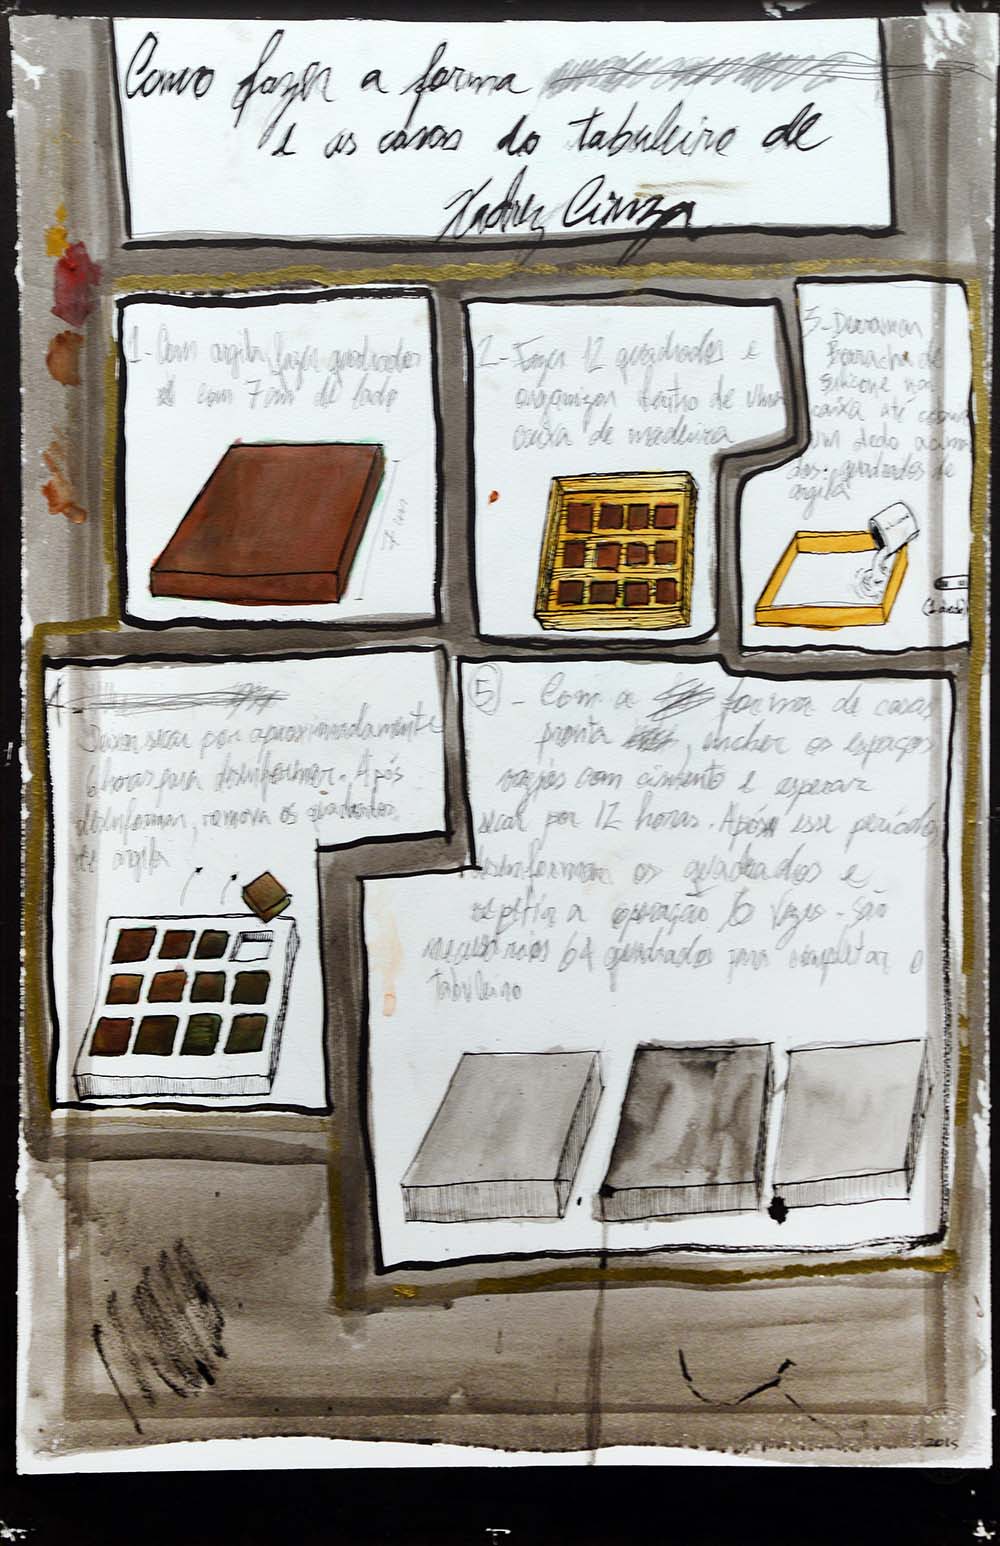 Como fazer a forma
e as casas do tabuleiro de
Xadrez Cinza
1- Com argila fazer quadrados
com 7cm de lado
7 cm
2- Fazer 12 quadrados e
organizar dentro de uma
caixa de madeira
3- Derramar
borracha de
silicone na
caixa até cobrir
um dedo acima
dos quadrados de
argila
(1 dedo)
4-
Deixar secar por aproximadamente
6 horas para desenformar. Após
desenformar, remova os quadrados
de argila
5 - Com a forma de casas
pronta, encher os espaços
vazios com cimento e esperar
secar por 12 horas. Após esse período
desenformar os quadrados e
repetir a operação 6 vezes. São
necessários 64 quadrados para completar o
tabuleiro
2015